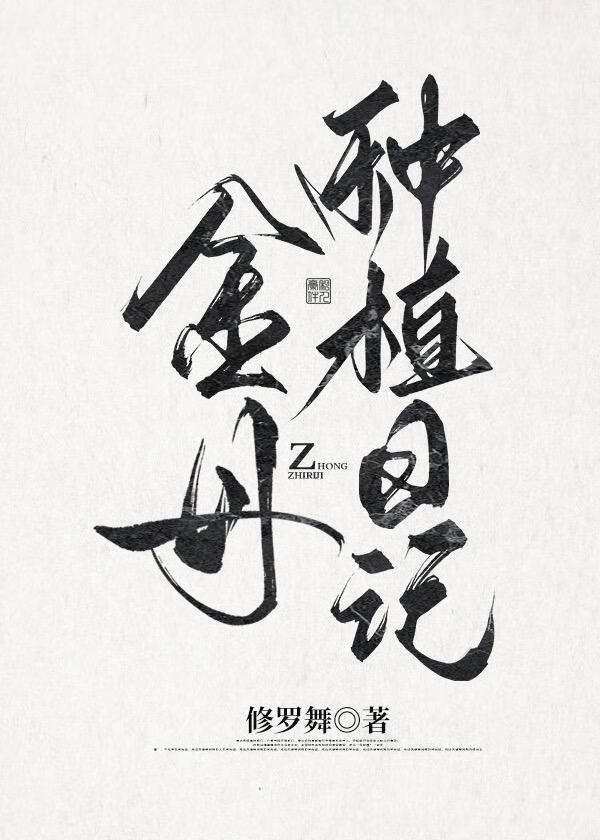 金丹
种植日记
ZHONG
ZHIRIJI
修罗舞◎著